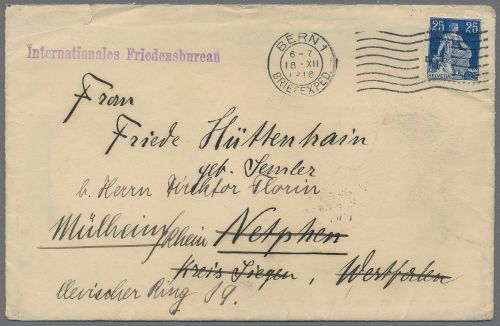 Internationales Friedensbureau
BERN 1
6-7
18·XII
1918
BRIEFEXPED.
25 25
HELVETIA
Frau
Friede Hüttenhain
geb. Semler
b. Herrn Direktor Florin
Mülheim/Rhein Netphen
Kreis Siegen, Westfalen
Clevischer Ring 19.